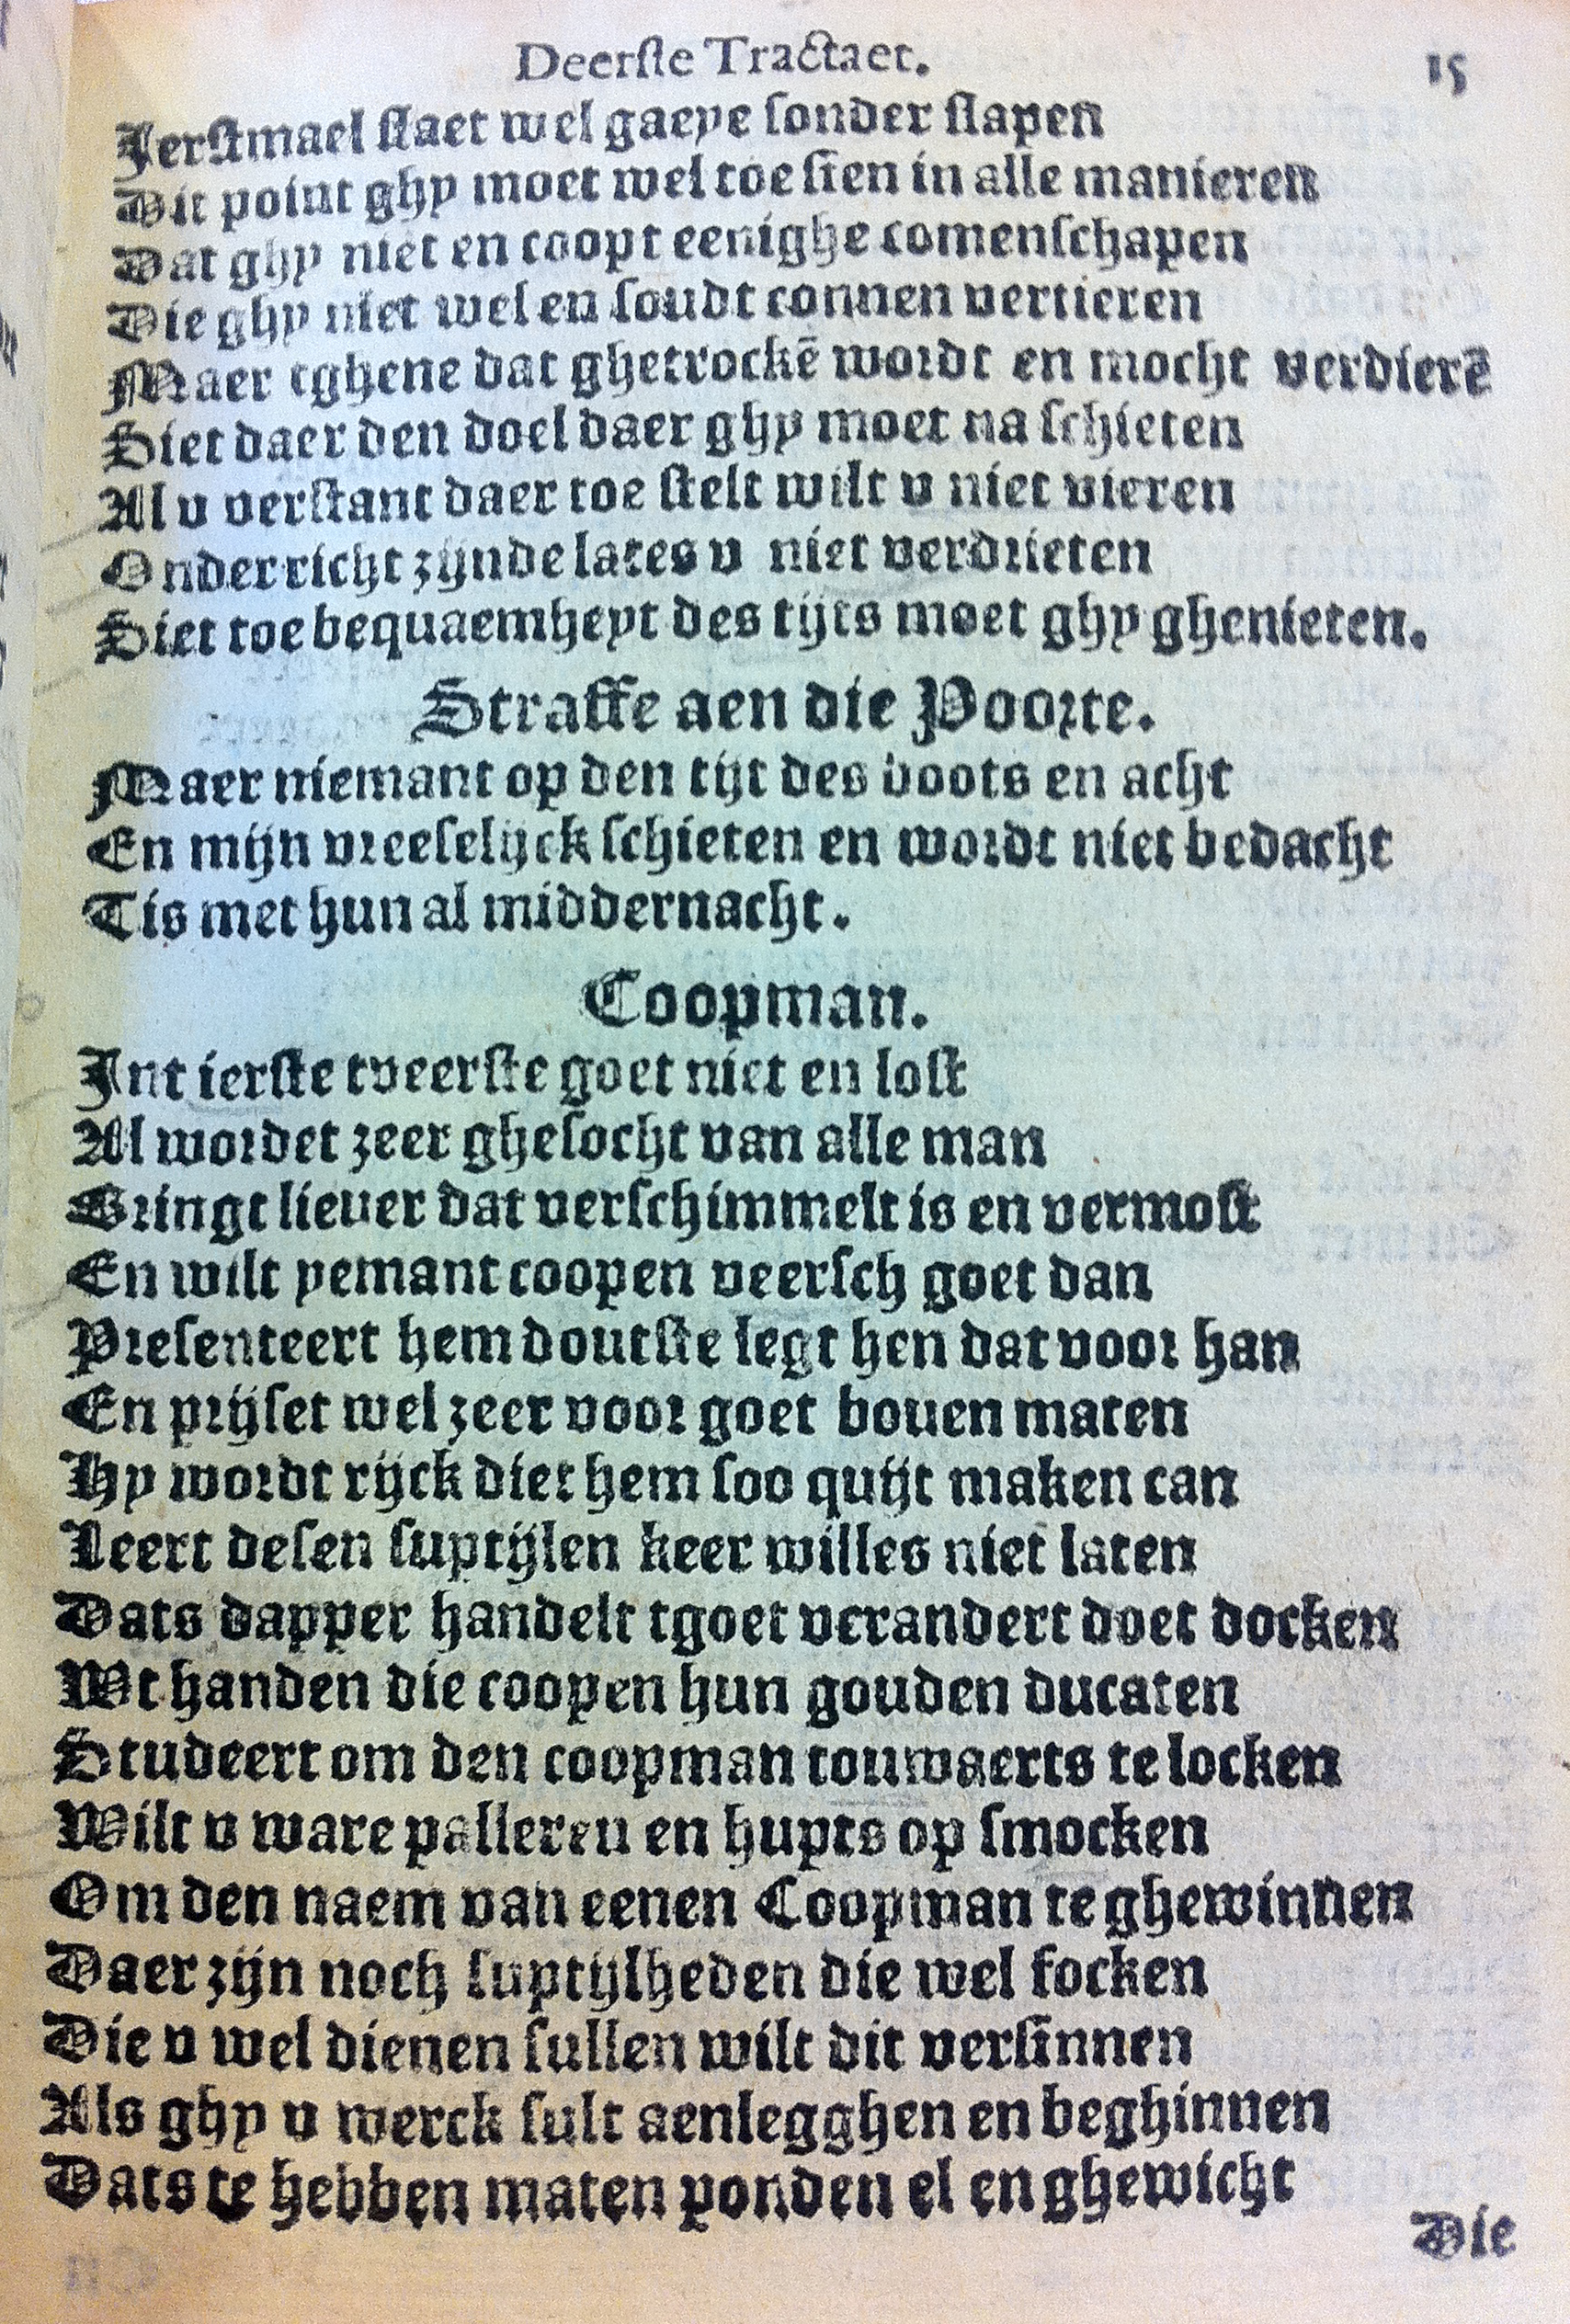 Deerſte Tractaet. 15
Ierſtmael ſlaet wel gaepe ſonder ſlapen
Dit point ghy moet wel toe ſien in alle manieren
Dat ghy niet en coopt eenighe comenſchapen
Die ghy niet wel en ſoudt connen vertieren
Maer tghene dat ghetrockē wordt en mocht verdierē
Siet daer den doel daer ghy moet na ſchieten
Al v verſtant daer toe ſtelt wilt v niet vieren
Onderricht zijnde lates v niet verdrieten
Siet toe bequaemheyt des tijts moet ghy ghenieten.
Straffe aen die Poorte.
Maer niemant op den tijt des doots en acht
En mijn vreeſelijck ſchieten en wordt niet bedacht
Tis met hun al middernacht.
Coopman.
Int ierſte tveerſte goet niet en loſt
Al wordet zeer gheſocht van alle man
Bringt lieuer dat verſchimmelt is en vermoſt
En wilt yemant coopen veerſch goet dan
Preſenteert hem doutſte legt hen dat voor han
En prijſet wel zeer voor goet bouen maten
Hy wordt rijck diet hem ſoo quijt maken can
Leert deſen ſuptijlen keer willes niet laten
Dats dapper handelt tgoet verandert doet docken
Wt handen die coopen hun gouden ducaten
Studeert om den coopman touwaerts te locken
Wilt v ware palleren en hupts op ſmocken
Om den naem van eenen Coopman te ghewinnen
Daer zijn noch ſuptijlheden die wel focken
Die v wel dienen ſullen wilt dit verſinnen
Als ghy v werck ſult aenlegghen en beghinnen
Dats te hebben maten ponden el en ghewicht
Die